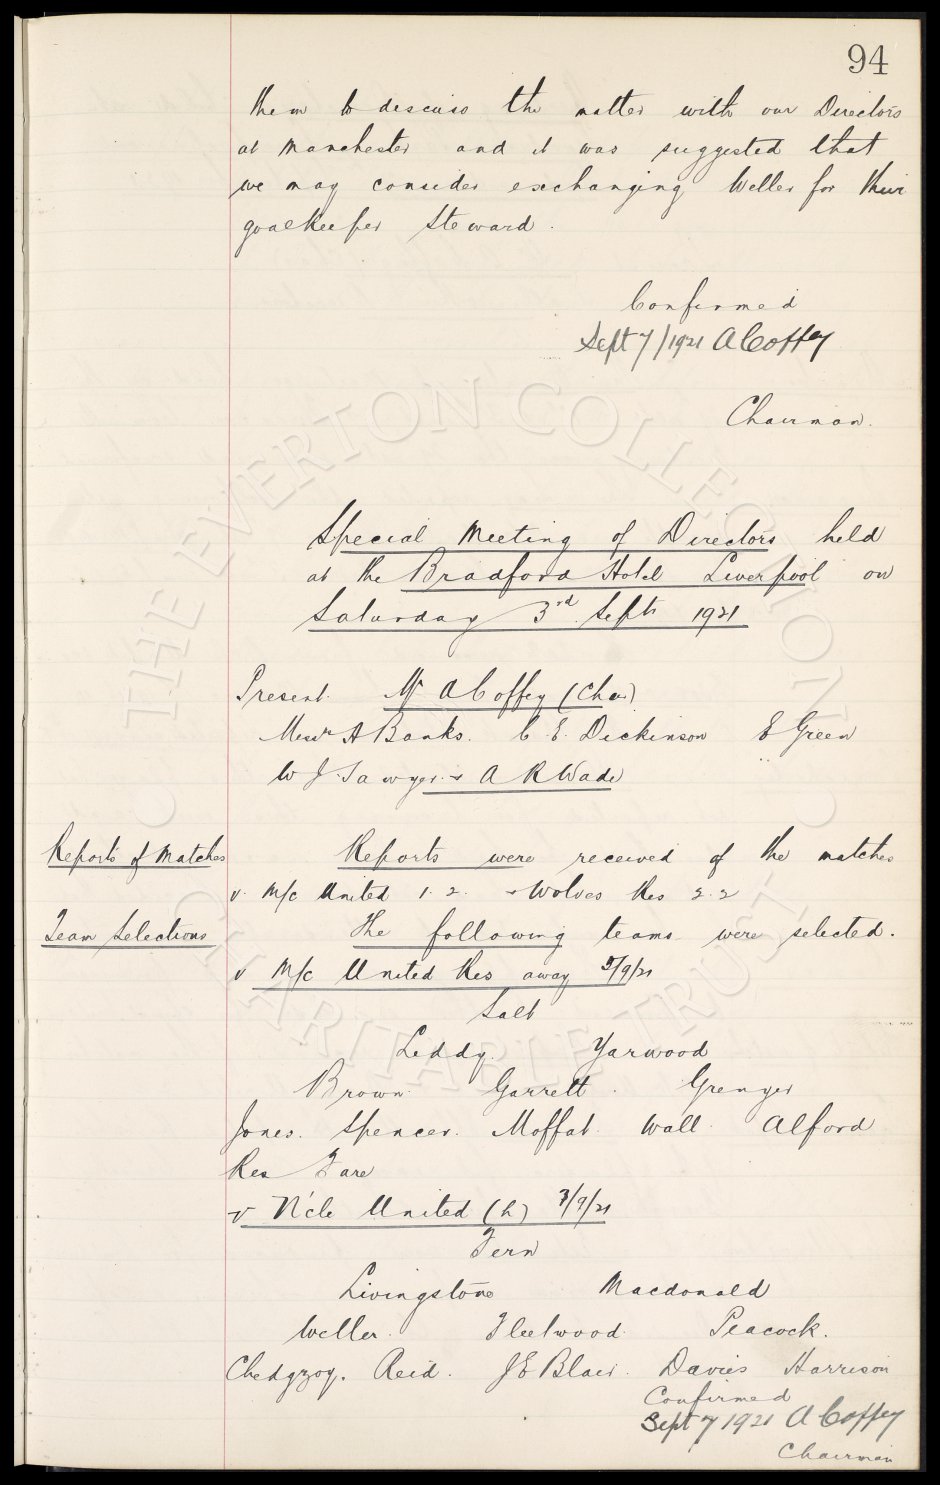 94
them to discuss the matter with our Directors
at Manchester and it was suggested that
we may consider exchanging Weller for their
goalkeeper Steward.
Confirmed
Sept 7/1921 A Coffey
Chairman.
Special Meeting of Directors held
at the Bradford Hotel Liverpool on
Saturday 3rd Septr 1921
Present. Mr A Coffey (Chair)
Messrs A Banks. C. E. Dickinson E Green
W J Sawyer & A R Wade
Reports of Matches
Reports were received of the matches
v. M/c United 1. 2. & Wolves Res 2. 2
Team Selections
The following teams were selected.
v M/c United Res away 3/9/21
Salt
Leddy. Yarwood
Brown. Garrett. Grenyer
Jones. Spencer. Moffat. Wall. Alford
Res Fare
v N'cle United (h) 3/9/21
Fern
Livingstone Macdonald
Weller. Fleetwood. Peacock.
Chedgzoy. Reid. J E Blair. Davies Harrison
Confirmed
Sept 7 1921 A Coffey
Chairman
THE EVERTON COLLECTION CHARITABLE TRUST